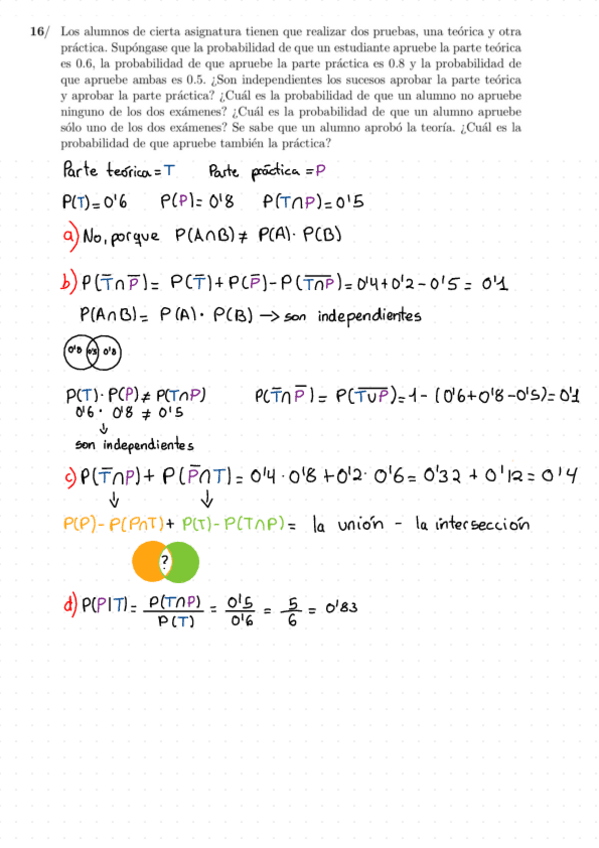 16/ Los alumnos de cierta asignatura tienen que realizar dos pruebas, una teórica y otra
práctica. Supóngase que la probabilidad de que un estudiante apruebe la parte teórica
es 0.6, la probabilidad de que apruebe la parte práctica es 0.8 y la probabilidad de
que apruebe ambas es 0.5. ¿Son independientes los sucesos aprobar la parte teórica
y aprobar la parte práctica? ¿Cuál es la probabilidad de que un alumno no apruebe
ninguno de los dos exámenes? ¿Cuál es la probabilidad de que un alumno apruebe
sólo uno de los dos exámenes? Se sabe que un alumno aprobó la teoría. ¿Cuál es la
probabilidad de que apruebe también la práctica?
Parte teórica = T Parte práctica = P
P(T) = 0'6 P(P) = 0'8 P(T∩P) = 0'5
a) No, porque P(A∩B) ≠ P(A) · P(B)
b) P(T̅∩P̅) = P(T̅) + P(P̅) - P(T̅∩̅P̅) = 0'4 + 0'2 - 0'5 = 0'1
P(A∩B) = P(A) · P(B) → son independientes
P(T) · P(P) ≠ P(T∩P) P(T̅∩P̅) = P(T̅∪̅P̅) = 1 - (0'6 + 0'8 - 0'5) = 0'1
0'6 · 0'8 ≠ 0'5
↓
son independientes
c) P(T̅∩P) + P(P̅∩T) = 0'4 · 0'8 + 0'2 · 0'6 = 0'32 + 0'12 = 0'4
↓ ↓
P(P) - P(P∩T) + P(T) - P(T∩P) = la unión - la intersección
?
d) P(P|T) = P(T∩P) / P(T) = 0'5 / 0'6 = 5 / 6 = 0'83